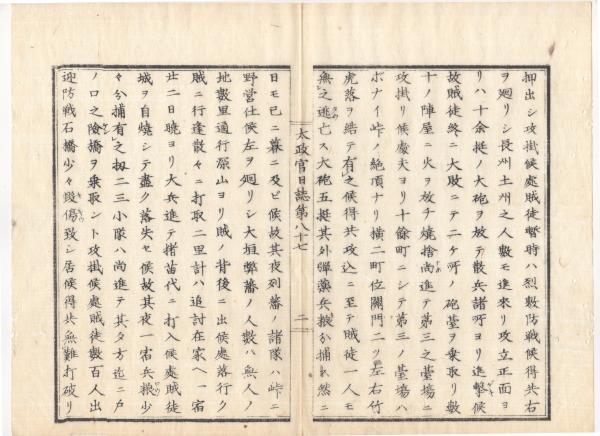 押出シ攻掛候處賊徒暫時ハ烈敷防戰候得共右
ヲ廻リシ長州土州之人數モ進來リ攻立正面ヨ
リハ十余挺ノ大砲ヲ放テ散兵諸所ヨリ進撃候
故賊徒終ニ大敗ニテ二ケ所ノ砲臺ヲ乗取リ數
十ノ陣屋ニ火ヲ放チ燒捨尚進テ第三之臺場ニ
攻掛リ候處夫ヨリ十餘町ニシテ第三ノ臺場ハ
ボナイ峠ノ絶頂ナリ横二町位關門二ツ左右竹
虎落ヲ結テ有之候得共攻込ニ至テ賊徒一人モ
無之逃亡ス大砲五挺其外彈藥兵粮分捕然ニ
太政官日誌第八十七
二
日モ已ニ暮ニ及ビ候故其夜列藩ノ諸隊ハ峠ニ
野營仕候左ヲ廻リシ大垣弊藩ノ人數ハ無人ノ
地數里通行原山ヨリ賊ノ背後ニ出候處落行ク
賊ニ行逢散々ニ打取二里計ハ追討在家ヘ一宿
廿二日曉ヨリ大兵進テ猪苗代ニ打入候處賊徒
城ヲ自燒シテ盡ク落失セ候故其夜一宿兵粮少
々分捕有之扨二三小隊ハ尚進テ其夕方迄ニ戸
ノ口之險橋ヲ乗取ント攻掛候處賊徒數百人出
迎防戰石橋少々毀傷致シ居候得共無難打破リ